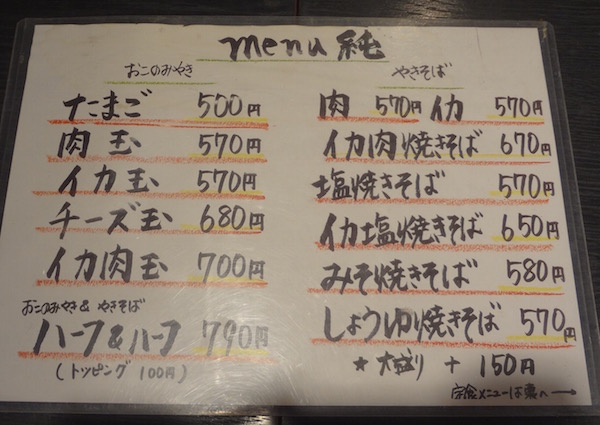 menu 純
おこのみやき
たまご 500円
肉玉 570円
イカ玉 570円
チーズ玉 680円
イカ肉玉 700円
おこのみやき & やきそば
ハーフ&ハーフ 790円
(トッピング 100円)
やきそば
肉 570円 イカ 570円
イカ肉焼きそば 670円
塩焼きそば 570円
イカ塩焼きそば 650円
みそ焼きそば 580円
しょうゆ焼きそば 570円
★ 大盛り + 150円
定食メニューは裏へ→